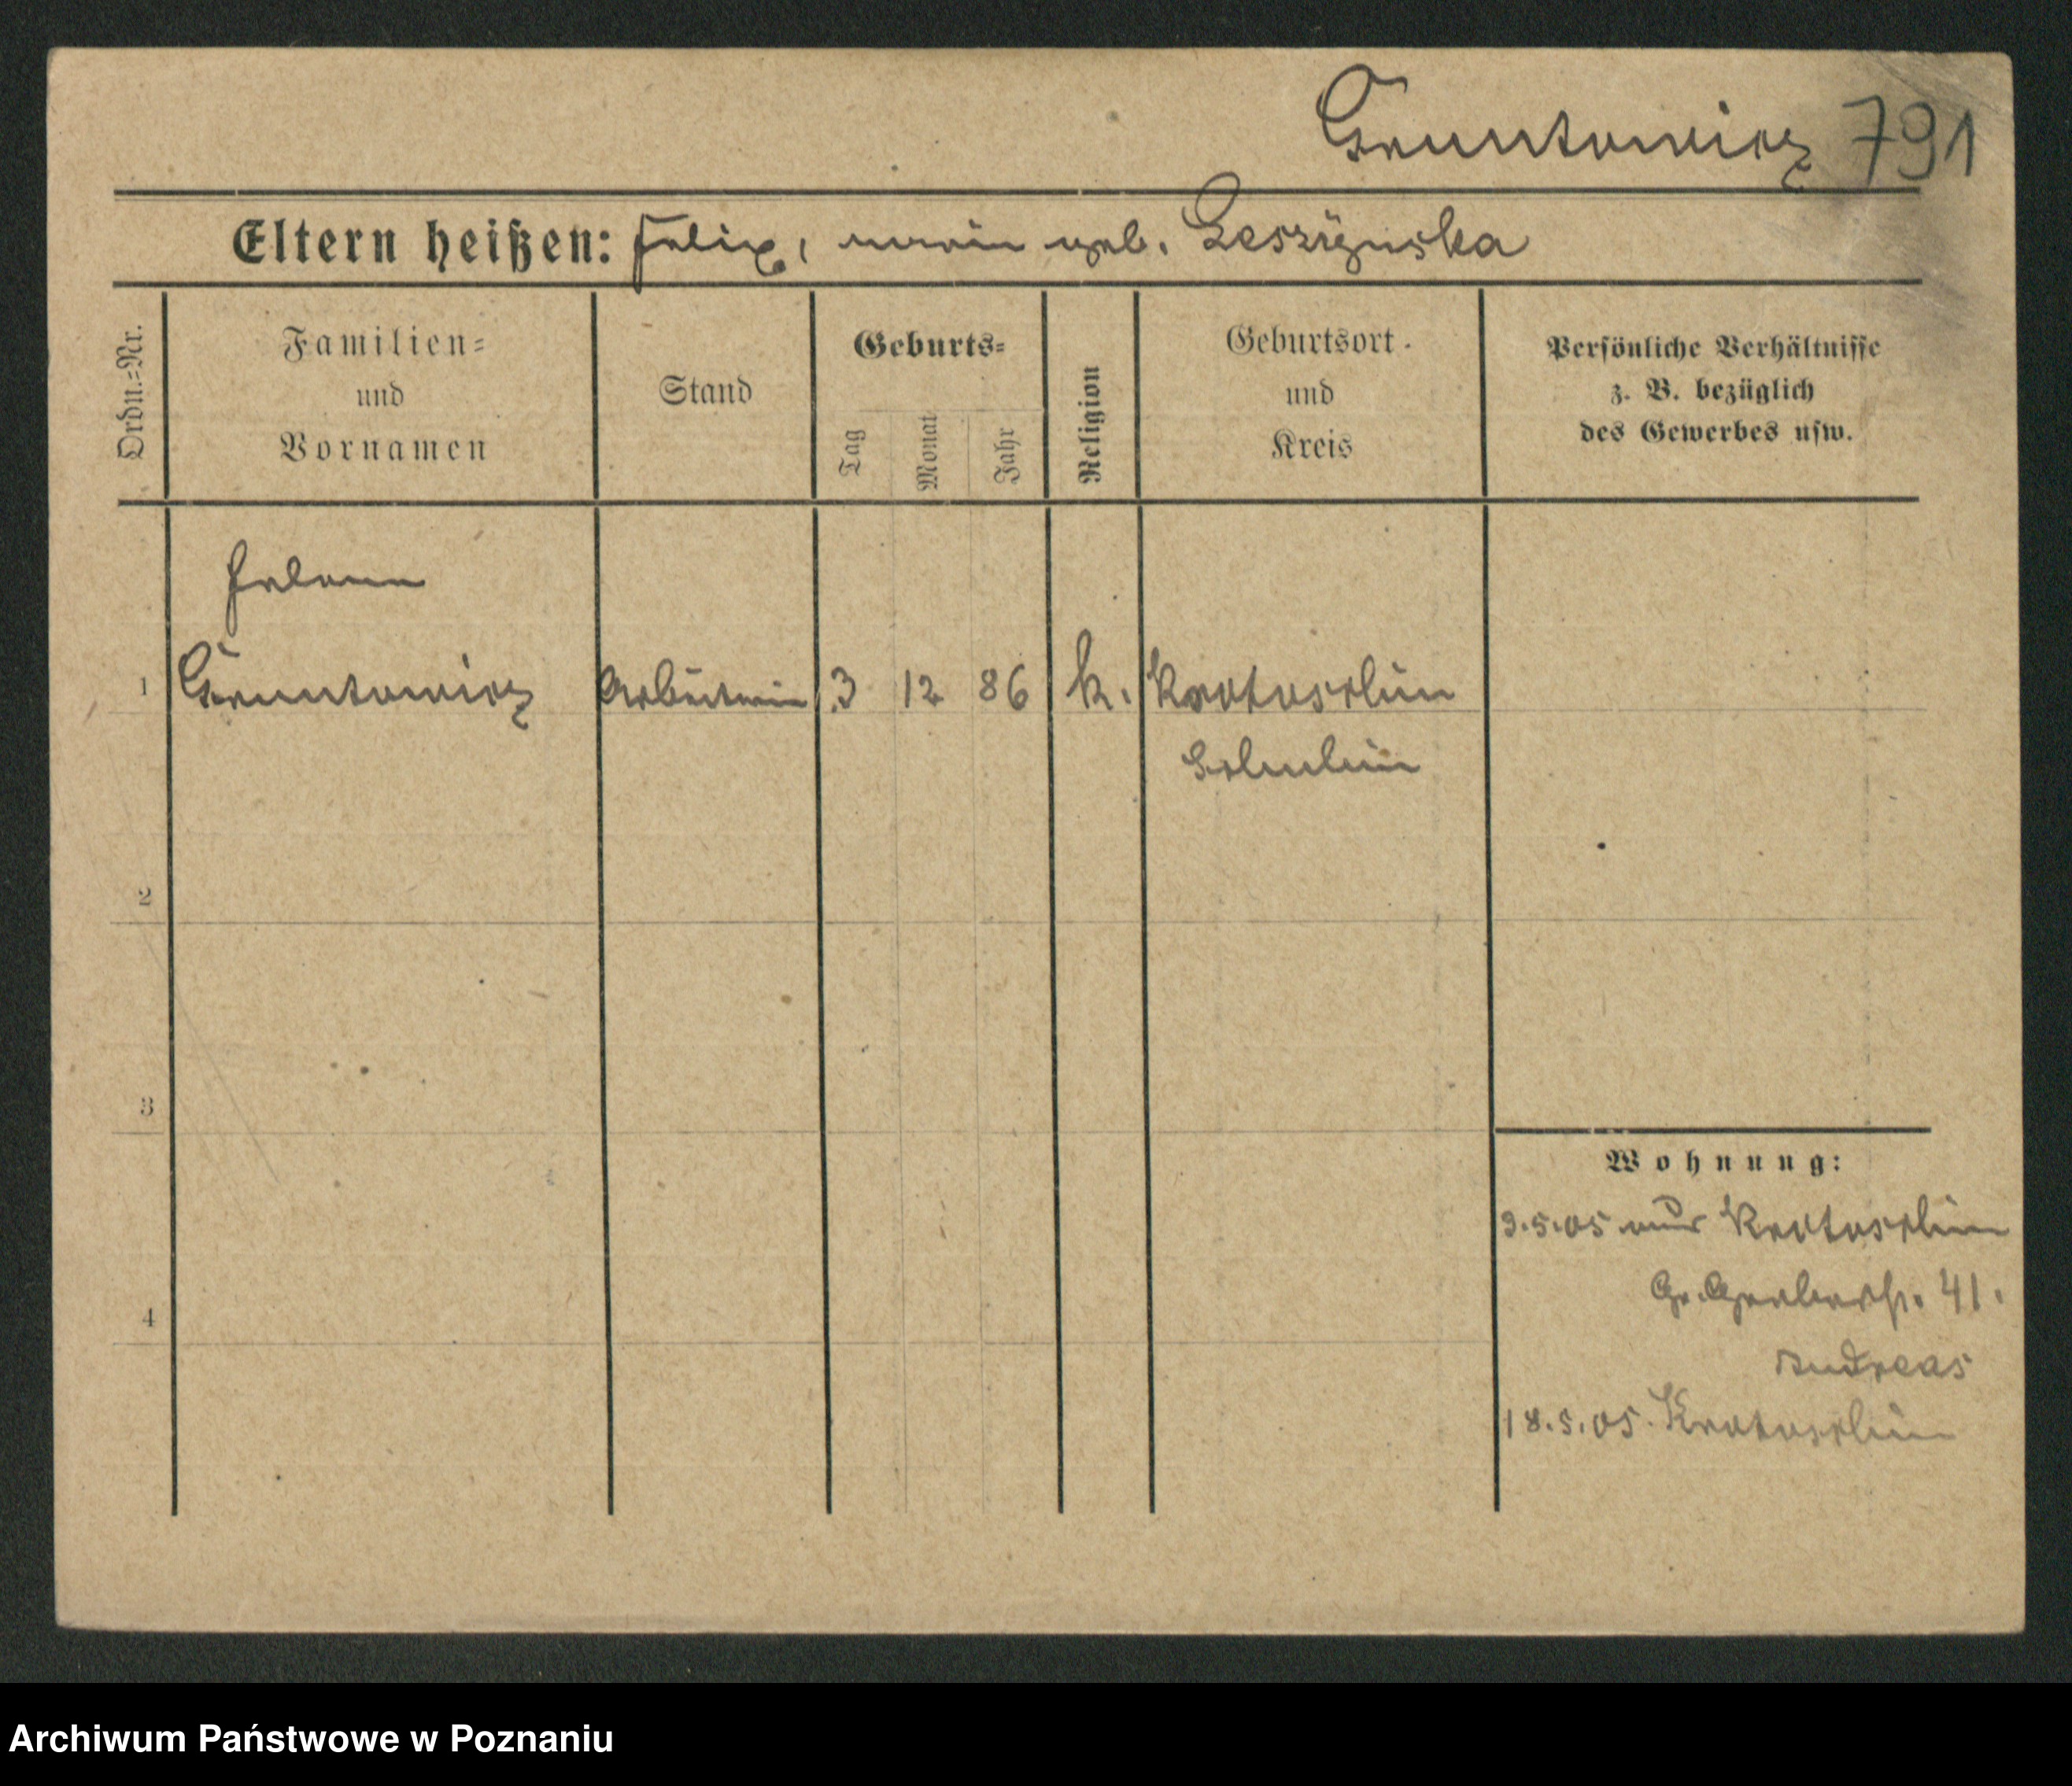 Gruntowicz 791
Eltern heißen: Felix, Marie geb. Leszczynska
Ordn.=Nr.
Familien=
und
Vornamen
Stand
Geburts=
Tag
Monat
Jahr
Religion
Geburtsort
und
Kreis
Persönliche Verhältnisse
z. B. bezüglich
des Gewerbes usw.
Helene
1 Gruntowicz Arbeiterin 3 12 86 k. Krotoschin
2
3
4
Wohnung:
3.5.05 aus Krotoschin
Gr. Gerberstr. 41.
Andreas
18.5.05. Krotoschin
Archiwum Państwowe w Poznaniu